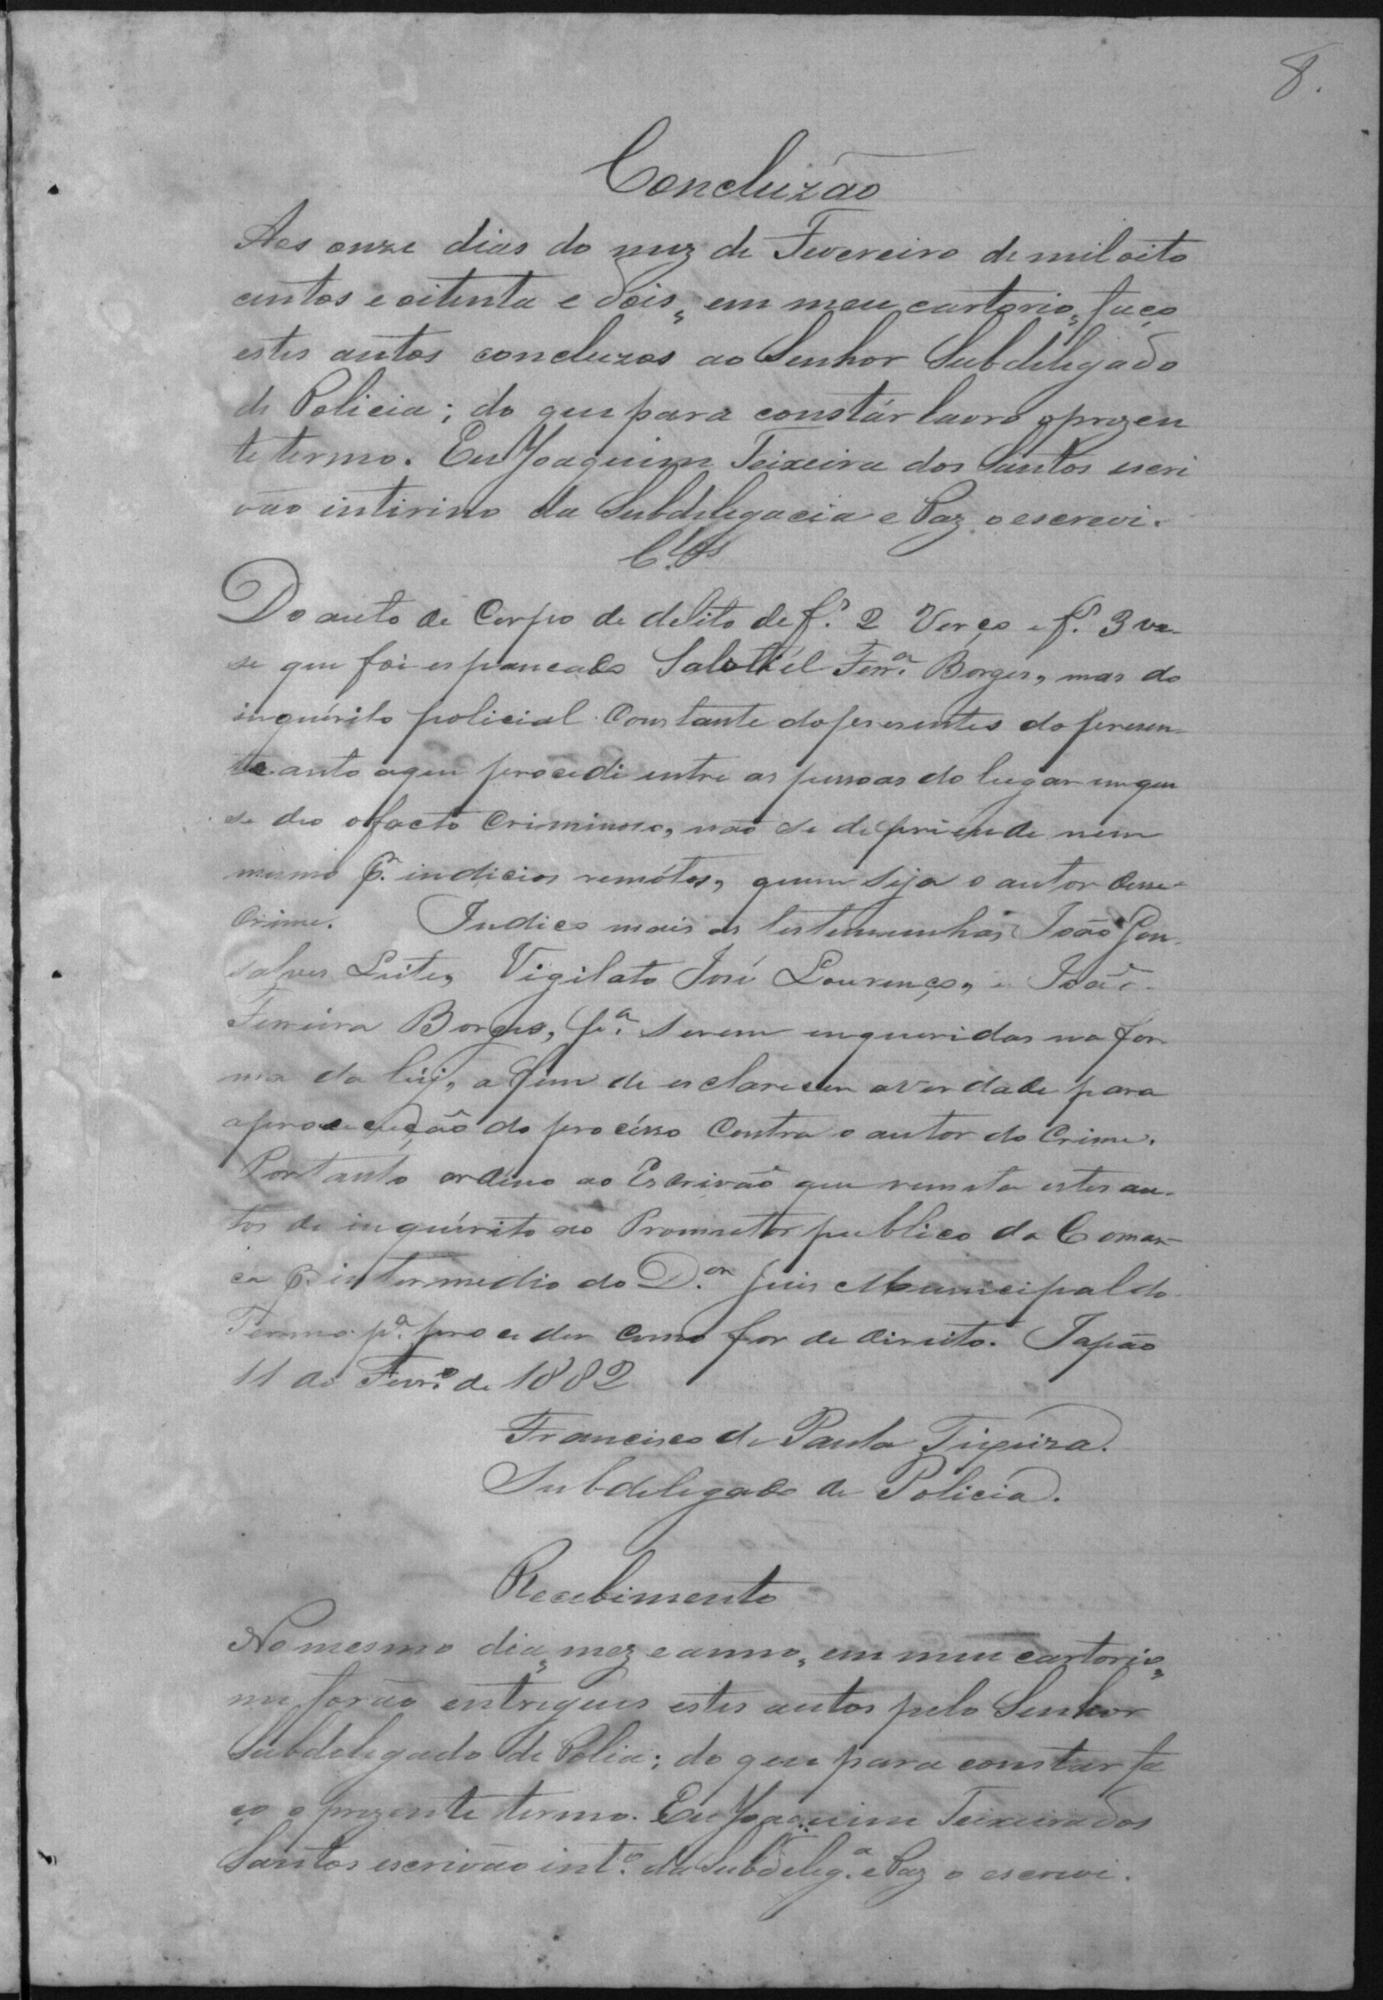 8.
Concluzão
Aos onze dias do mez de Fevereiro de mil oito
centos e oitenta e dois, em meu cartorio, faço
estes autos concluzos ao Senhor Subdelegado
de Policia; do que para constár lavro o prezen
te termo. Eu Joaquim Teixeira dos Santos escri
vão intirino da Subdelegacia e Paz o escrevi.
Cl.os
Do auto de Corpo de delito de f.s 2 Verço e f.s 3 ve-
se que foi espancado Salatiél Ferr.a Borges, mas do
inquérito policial Constante do presente
auto a que procedi entre as pessoas do lugar em que
se deo o facto Criminoso, não se depriende nem
mesmo p.r indicios remótos, quem seja o autor desse
Crime. Indico mais as testemunhas João Gon
salves Leite, Vigilato José Lourenço, e João
Ferreira Borges, p.a serem enqueridas na for
ma da lei, a fim de esclarecer a verdade para
a procecução do procésso Contra o autor do Crime.
Portanto ordeno ao Escrivão que remeta estes au-
tos de inquérito ao Promotor publico da Comar-
ca p.r intermedio do D.or Juis Municipal do
Termo p.a proceder como for de direito. Japão
11 de Fevr.o de 1882
Francisco de Paula Tixeira.
Subdelegado de Policia.
Recebimento
No mesmo dia, mez e anno, em meu cartorio,
me forão entregues estes autos pelo Senhor
Subdelegado de Polia; do que para constar fa
ço o prezente termo. Eu Joaquim Teixeira dos
Santos escrivão int.o da Subdeleg.a e Paz o escrevi.